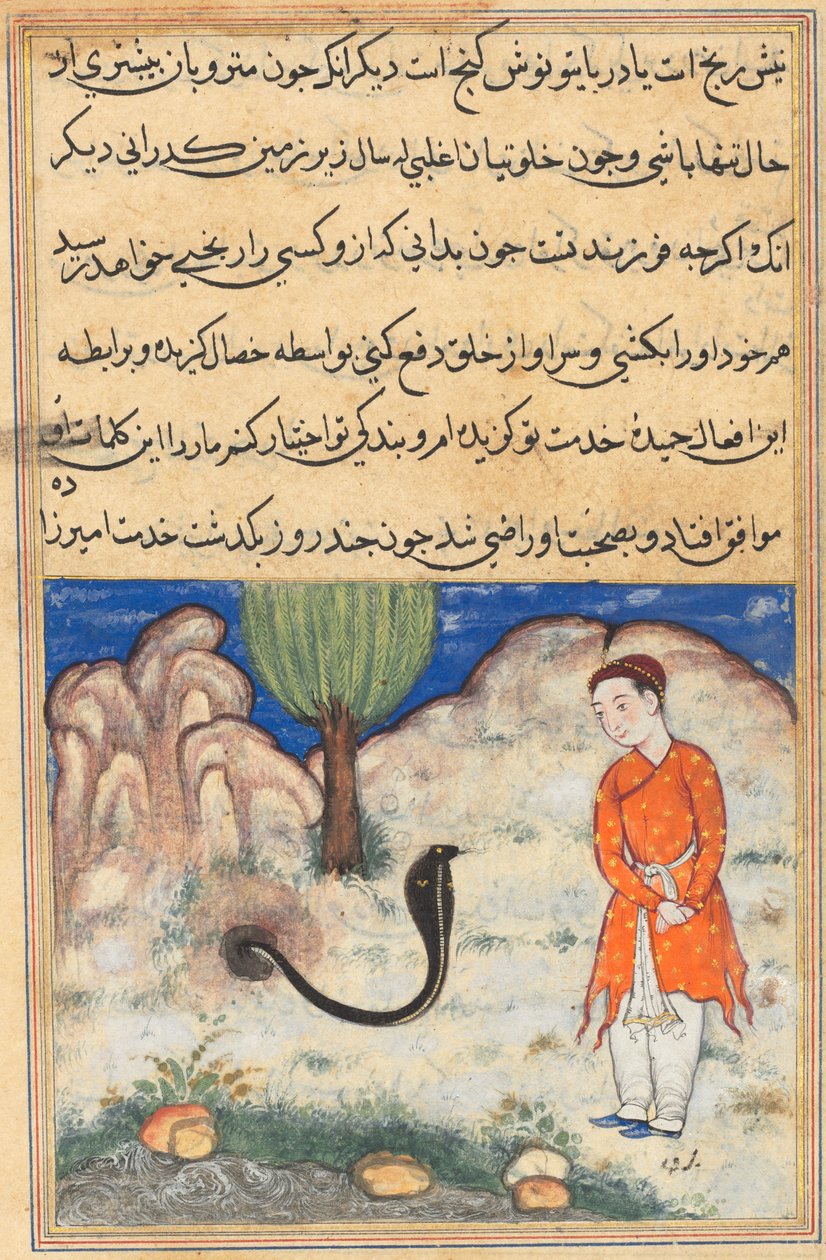 نیش رنج است یا در با یتو نوش کنج است دیکر انک جون متروبان بیشتری از
حال تنها باشی وجون خلوتیان اغلبی له سال زیر زمین کدرانی دیکر
انک اکرجه فرزند تست جون بدانی که از و کسی را رنجی خواهد رسید
هم خود او را بکشی و سر او از خلق دفع کنی بواسطه خصال کزیده و برابطه
این افعال حمیده خدمت تو کزیده ام و بندکی تو اختیار کنم مار را این کلمات او
موافق افتاد و بصحبت او راضی شد جون جند روز بکذشت خدمت امیرزاده